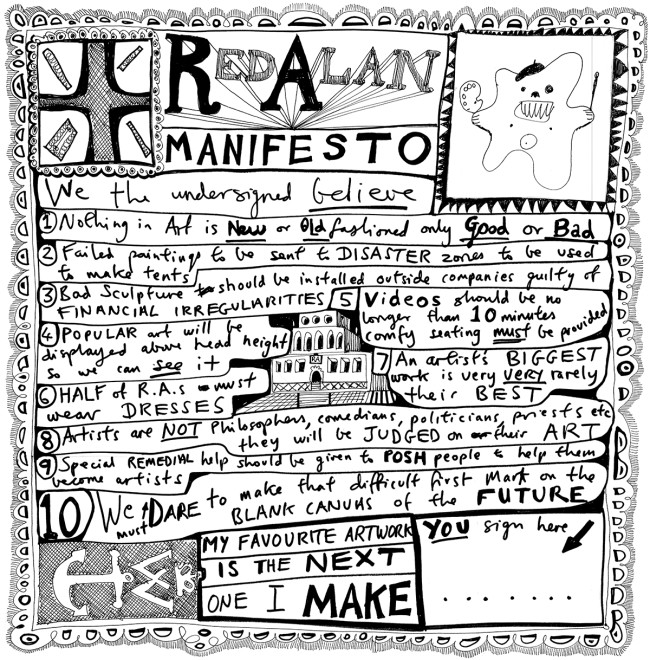 RED ALAN
MANIFESTO
We the undersigned believe
1 Nothing in Art is New or Old fashioned only Good or Bad
2 Failed paintings to be sent to DISASTER zones to be used
to make tents
3 Bad Sculpture should be installed outside companies guilty of
FINANCIAL IRREGULARITIES
4 POPULAR art will be
displayed above head height
so we can see it
5 Videos should be no
longer than 10 minutes
comfy seating must be provided
6 HALF of R.A.s must
wear DRESSES
7 An artist's BIGGEST
work is very VERY rarely
their BEST
8 Artists are NOT Philosophers, comedians, politicians, priests etc
they will be JUDGED on their ART
9 Special REMEDIAL help should be given to POSH people to help them
become artists
10 We must DARE to make that difficult first Mark on the
BLANK CANVAS of the FUTURE
MY FAVOURITE ARTWORK
IS THE NEXT
ONE I MAKE
YOU sign here